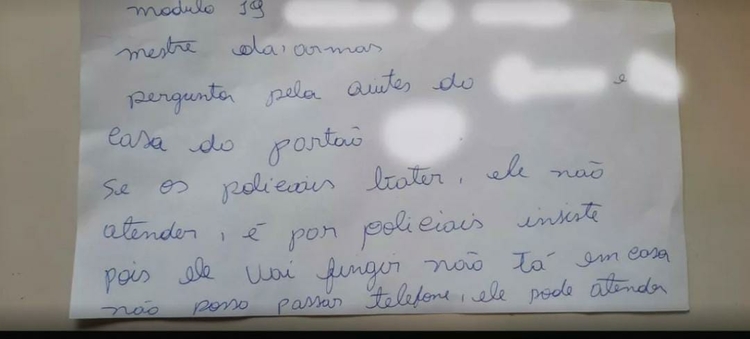 modulo 19
mestre da: armas
pergunta pela antes do e
casa do portão
se os policiais bater, ele não
atender, é por policiais insiste
pois ele vai fungir não tá em casa
não posso passar telefone, ele pode atender